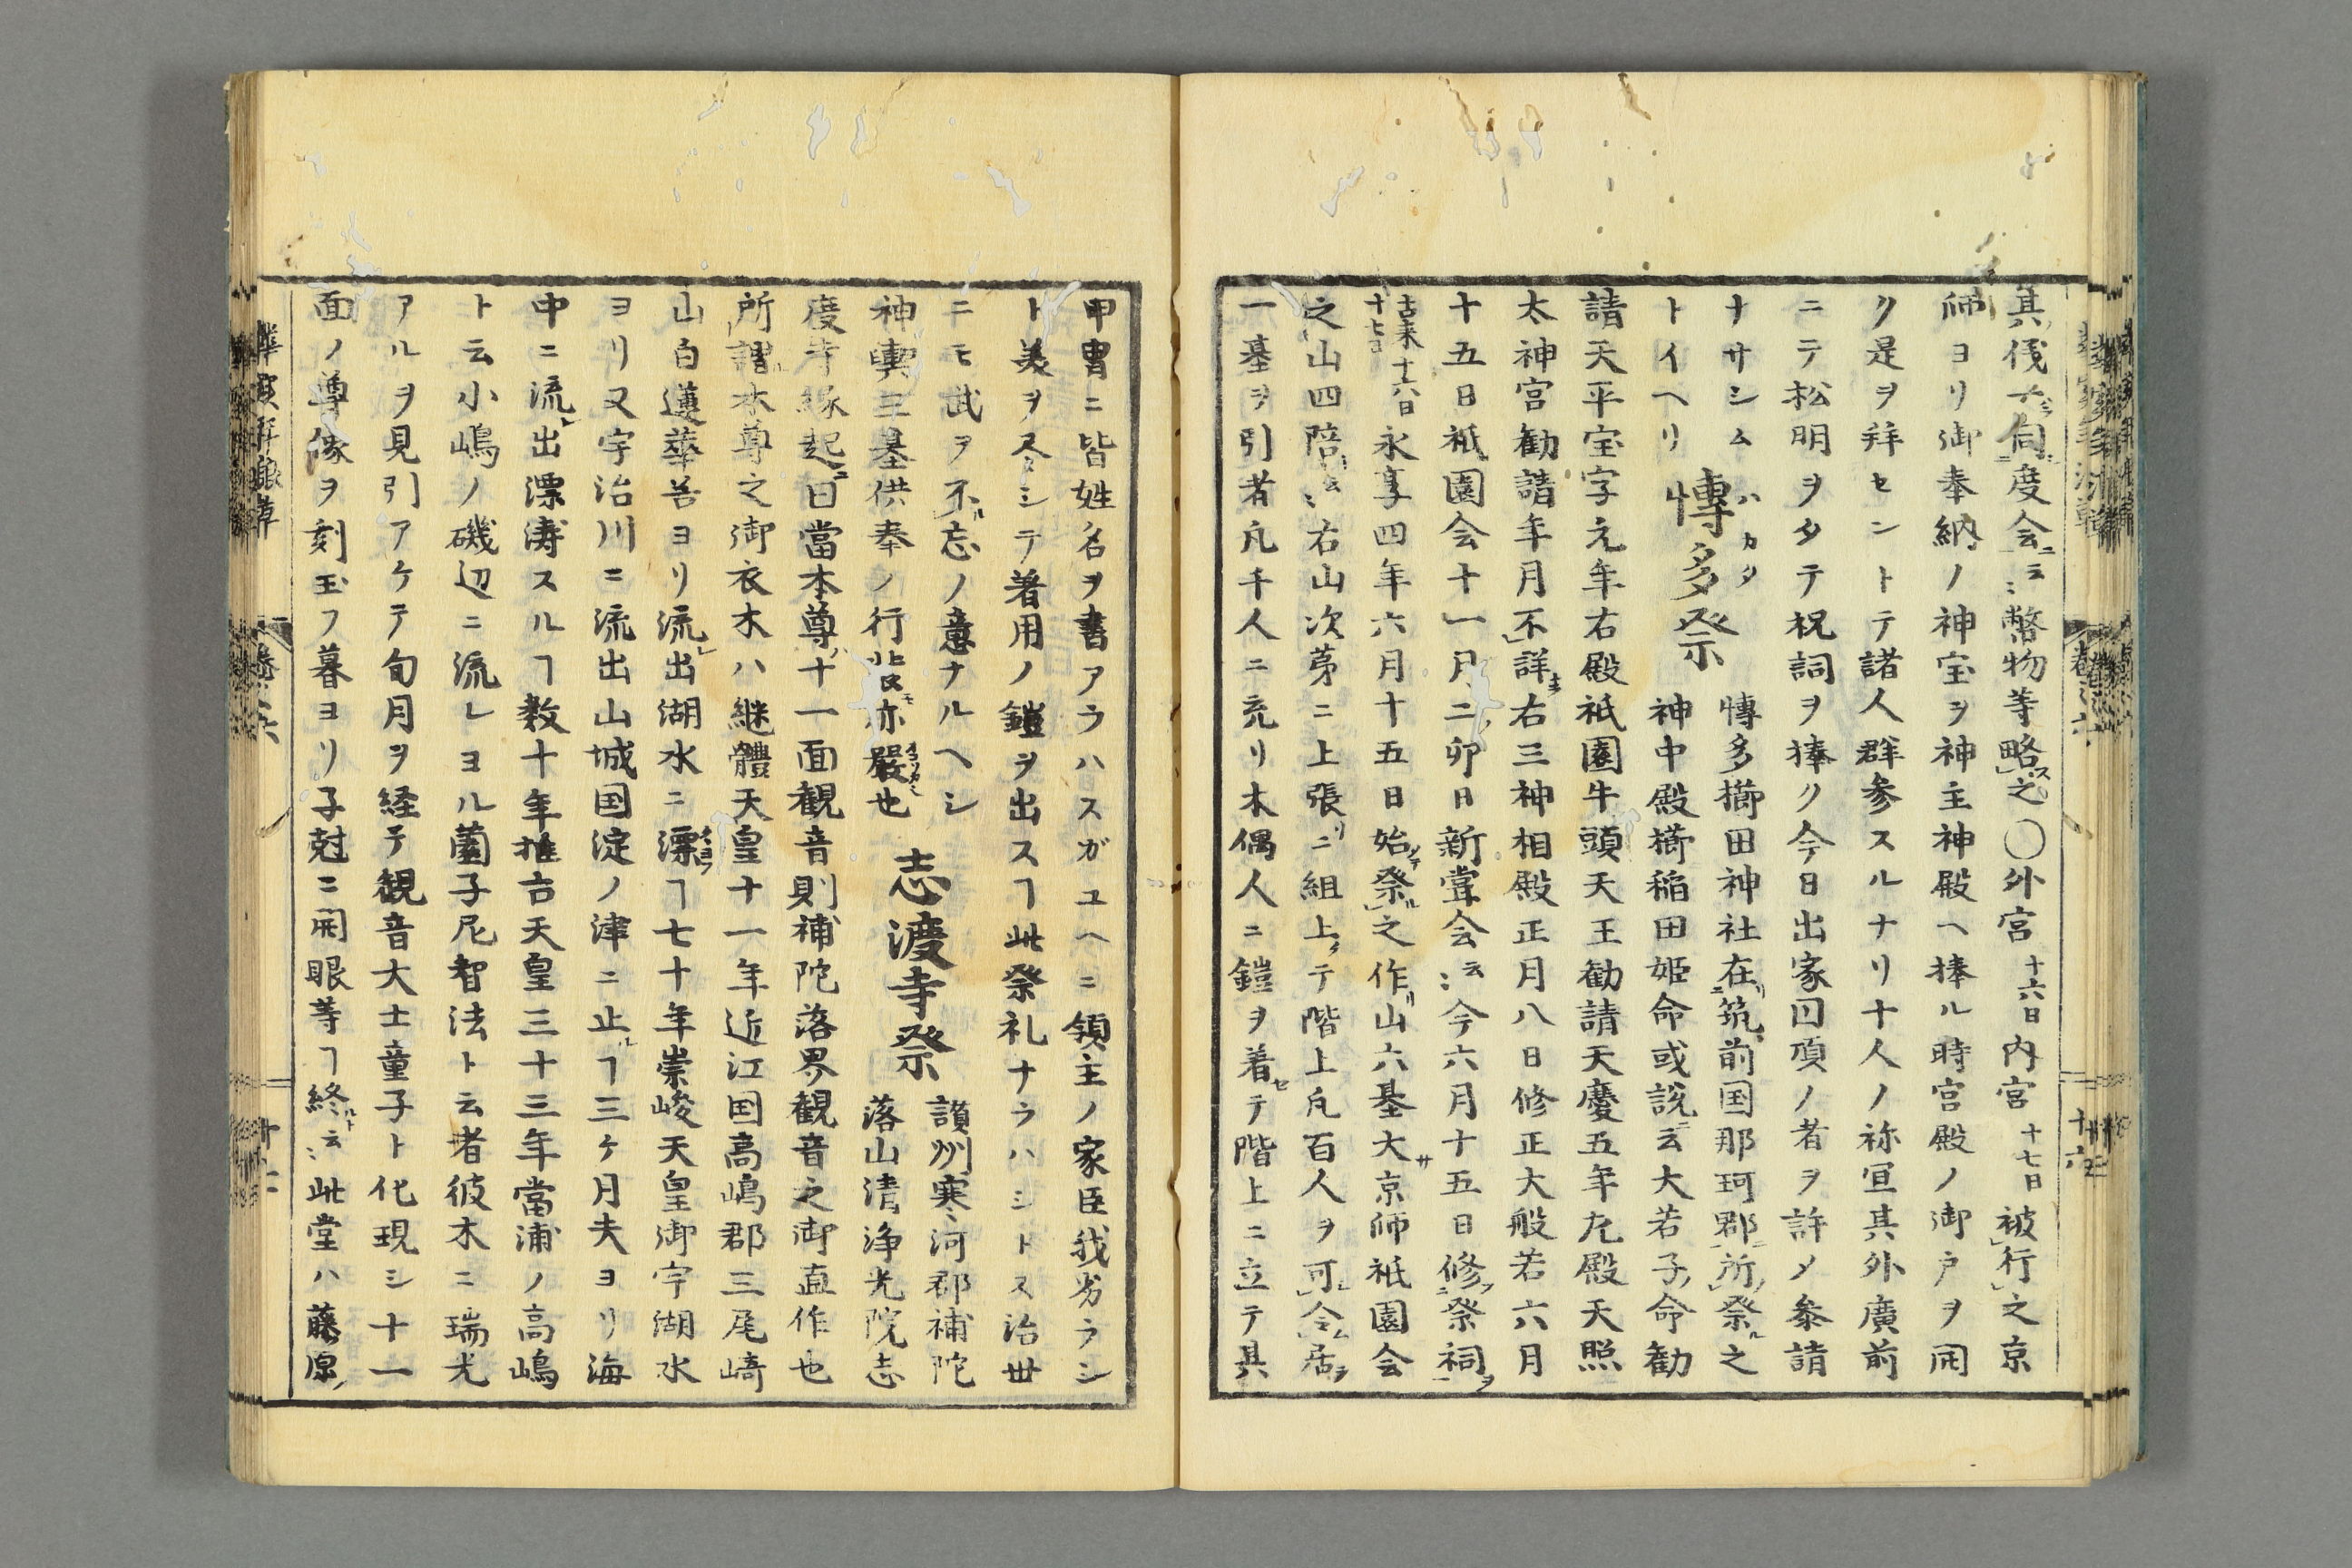 其儀大同度会云云幣物等略之〇外宮十六日内宮十七日被行之京
師ヨリ御奉納ノ神宝ヲ神主神殿ヘ捧ル時宮殿ノ御戸ヲ開
ク是ヲ拜セントテ諸人群参スルナリ十人ノ祢宜其外廣前
ニテ松明ヲタテ祝詞ヲ捧ク今日出家円頂ノ者ヲ許メ参詣
ナサシム
トイヘリ
博多祭
ハカタ
博多櫛田神社在筑前国那珂郡所祭之
神中殿櫛稲田姫命或説云大若子命勧
請天平宝字元年右殿祇園牛頭天王勧請天慶五年左殿天照
太神宮勧請年月不詳右三神相殿正月八日修正大般若六月
十五日祇園会十一月二卯日新嘗会云云今六月十五日修祭祠
古来十六日
十七日
永享四年六月十五日始祭之作山六基大京師祇園会
之山四陪云云右山次苐ニ上張ニ組上テ階上凡百人ヲ可令居
一基ヲ引者凡千人ニ充リ木偶人ニ鎧ヲ着セテ階上ニ立テ其
甲冑ニ皆姓名ヲ書アラハスガユヘニ領主ノ家臣我劣ラシ
ト美ヲ尽シテ着用ノ鎧ヲ出スヿ此祭礼ナラハシトス治世
ニモ武ヲ不忘ノ意ナルヘシ
神輿三基供奉ノ行粧亦嚴也
志渡寺祭
讃州寒河郡補陀
落山清浄光院志
度寺縁起曰當本尊十一面観音則補陀落界観音之御直作也
所謂本尊之御衣木ハ継體天皇十一年近江国高嶋郡三尾﨑
山白蓮華谷ヨリ流出湖水ニ漂ヿ七十年崇峻天皇御宇湖水
ヨリ又宇治川ニ流出山城国淀ノ津ニ止ルヿ三ケ月夫ヨリ海
中ニ流出漂濤スルヿ数十年推古天皇三十三年當浦ノ高嶋
ト云小嶋ノ磯辺ニ流レヨル薗子尼智法ト云者彼木ニ瑞光
アルヲ見引アケテ旬月ヲ経テ観音大士童子ト化現シ十一
面ノ尊像ヲ刻玉フ暮ヨリ子尅ニ開眼等ヿ終云云此堂ハ藤原